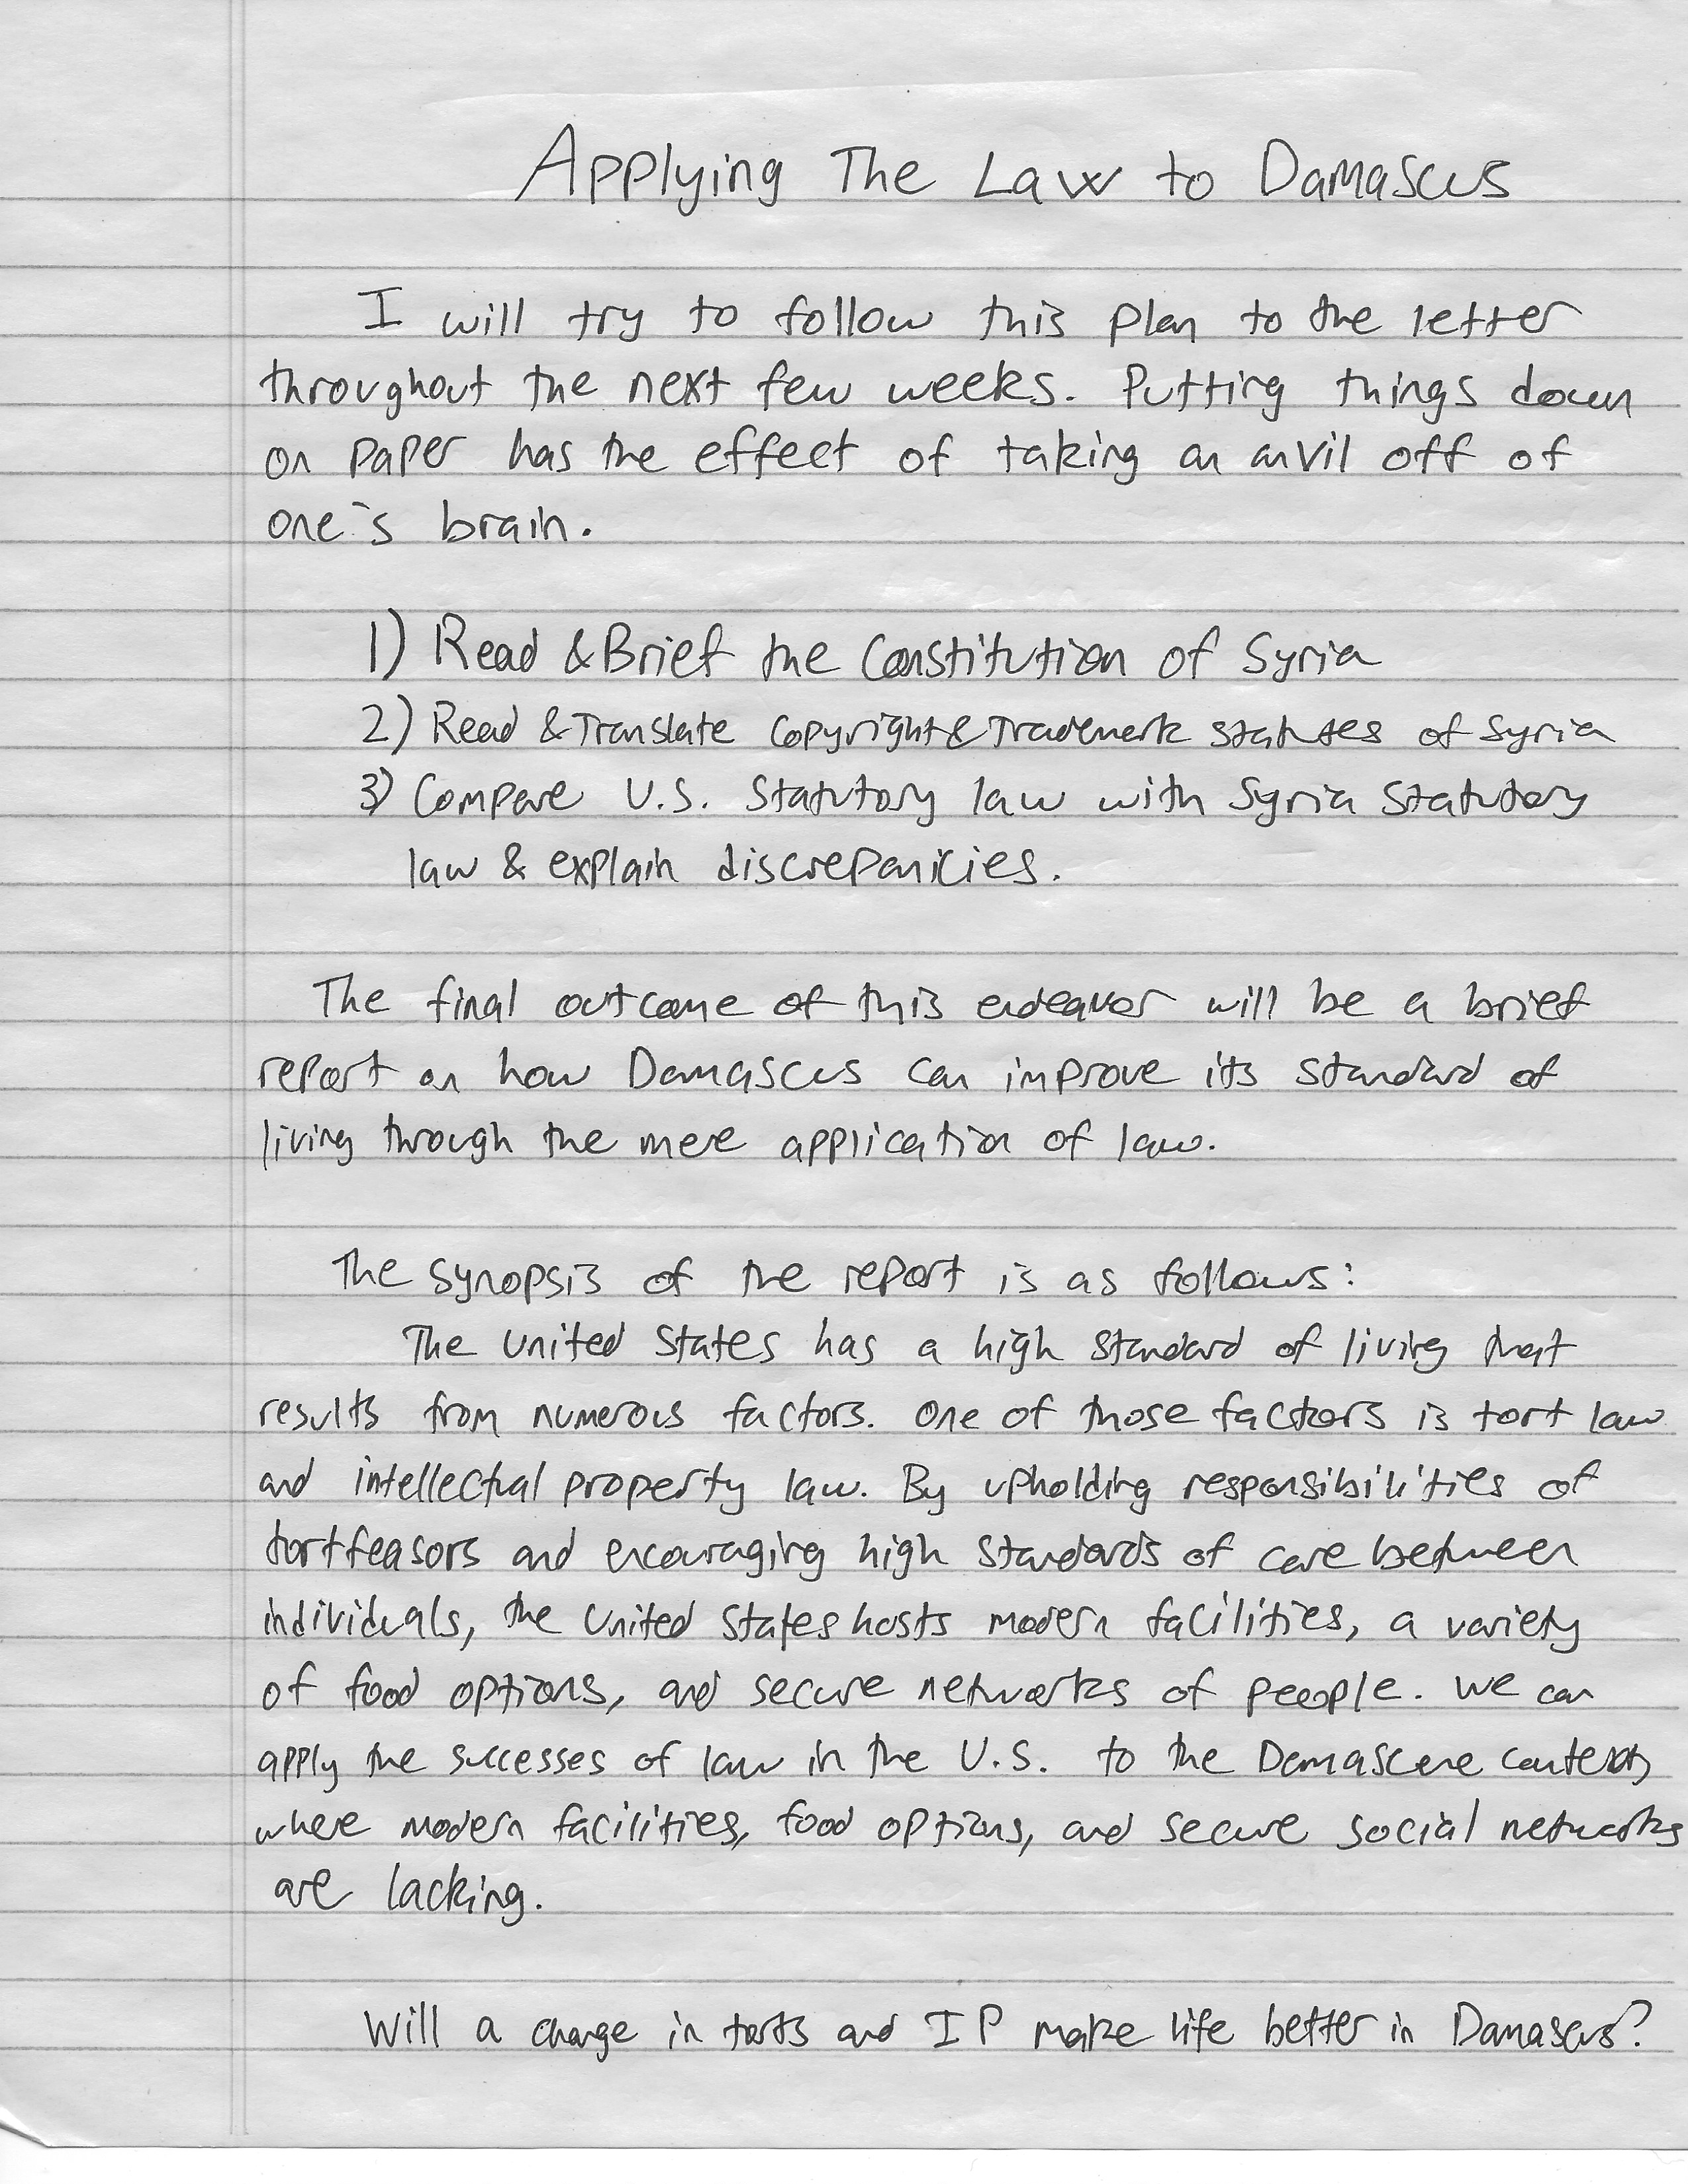 Applying The Law to Damascus
I will try to follow this plan to the letter
throughout the next few weeks. Putting things down
on paper has the effect of taking an anvil off of
one's brain.
1) Read & Brief the Constitution of Syria
2) Read & Translate Copyright & Trademark statutes of Syria
3) Compare U.S. Statutory law with Syria Statutory
law & explain discrepanicies.
The final outcome of this endeavor will be a brief
report on how Damascus can improve its standard of
living through the mere application of law.
The synopsis of the report is as follows:
The United States has a high standard of living that
results from numerous factors. One of those factors is tort law
and intellectual property law. By upholding responsibilities of
tortfeasors and encouraging high standards of care between
individuals, the United States hosts modern facilities, a variety
of food options, and secure networks of people. We can
apply the successes of law in the U.S. to the Damascene context,
where modern facilities, food options, and secure social networks
are lacking.
Will a change in torts and IP make life better in Damascus?